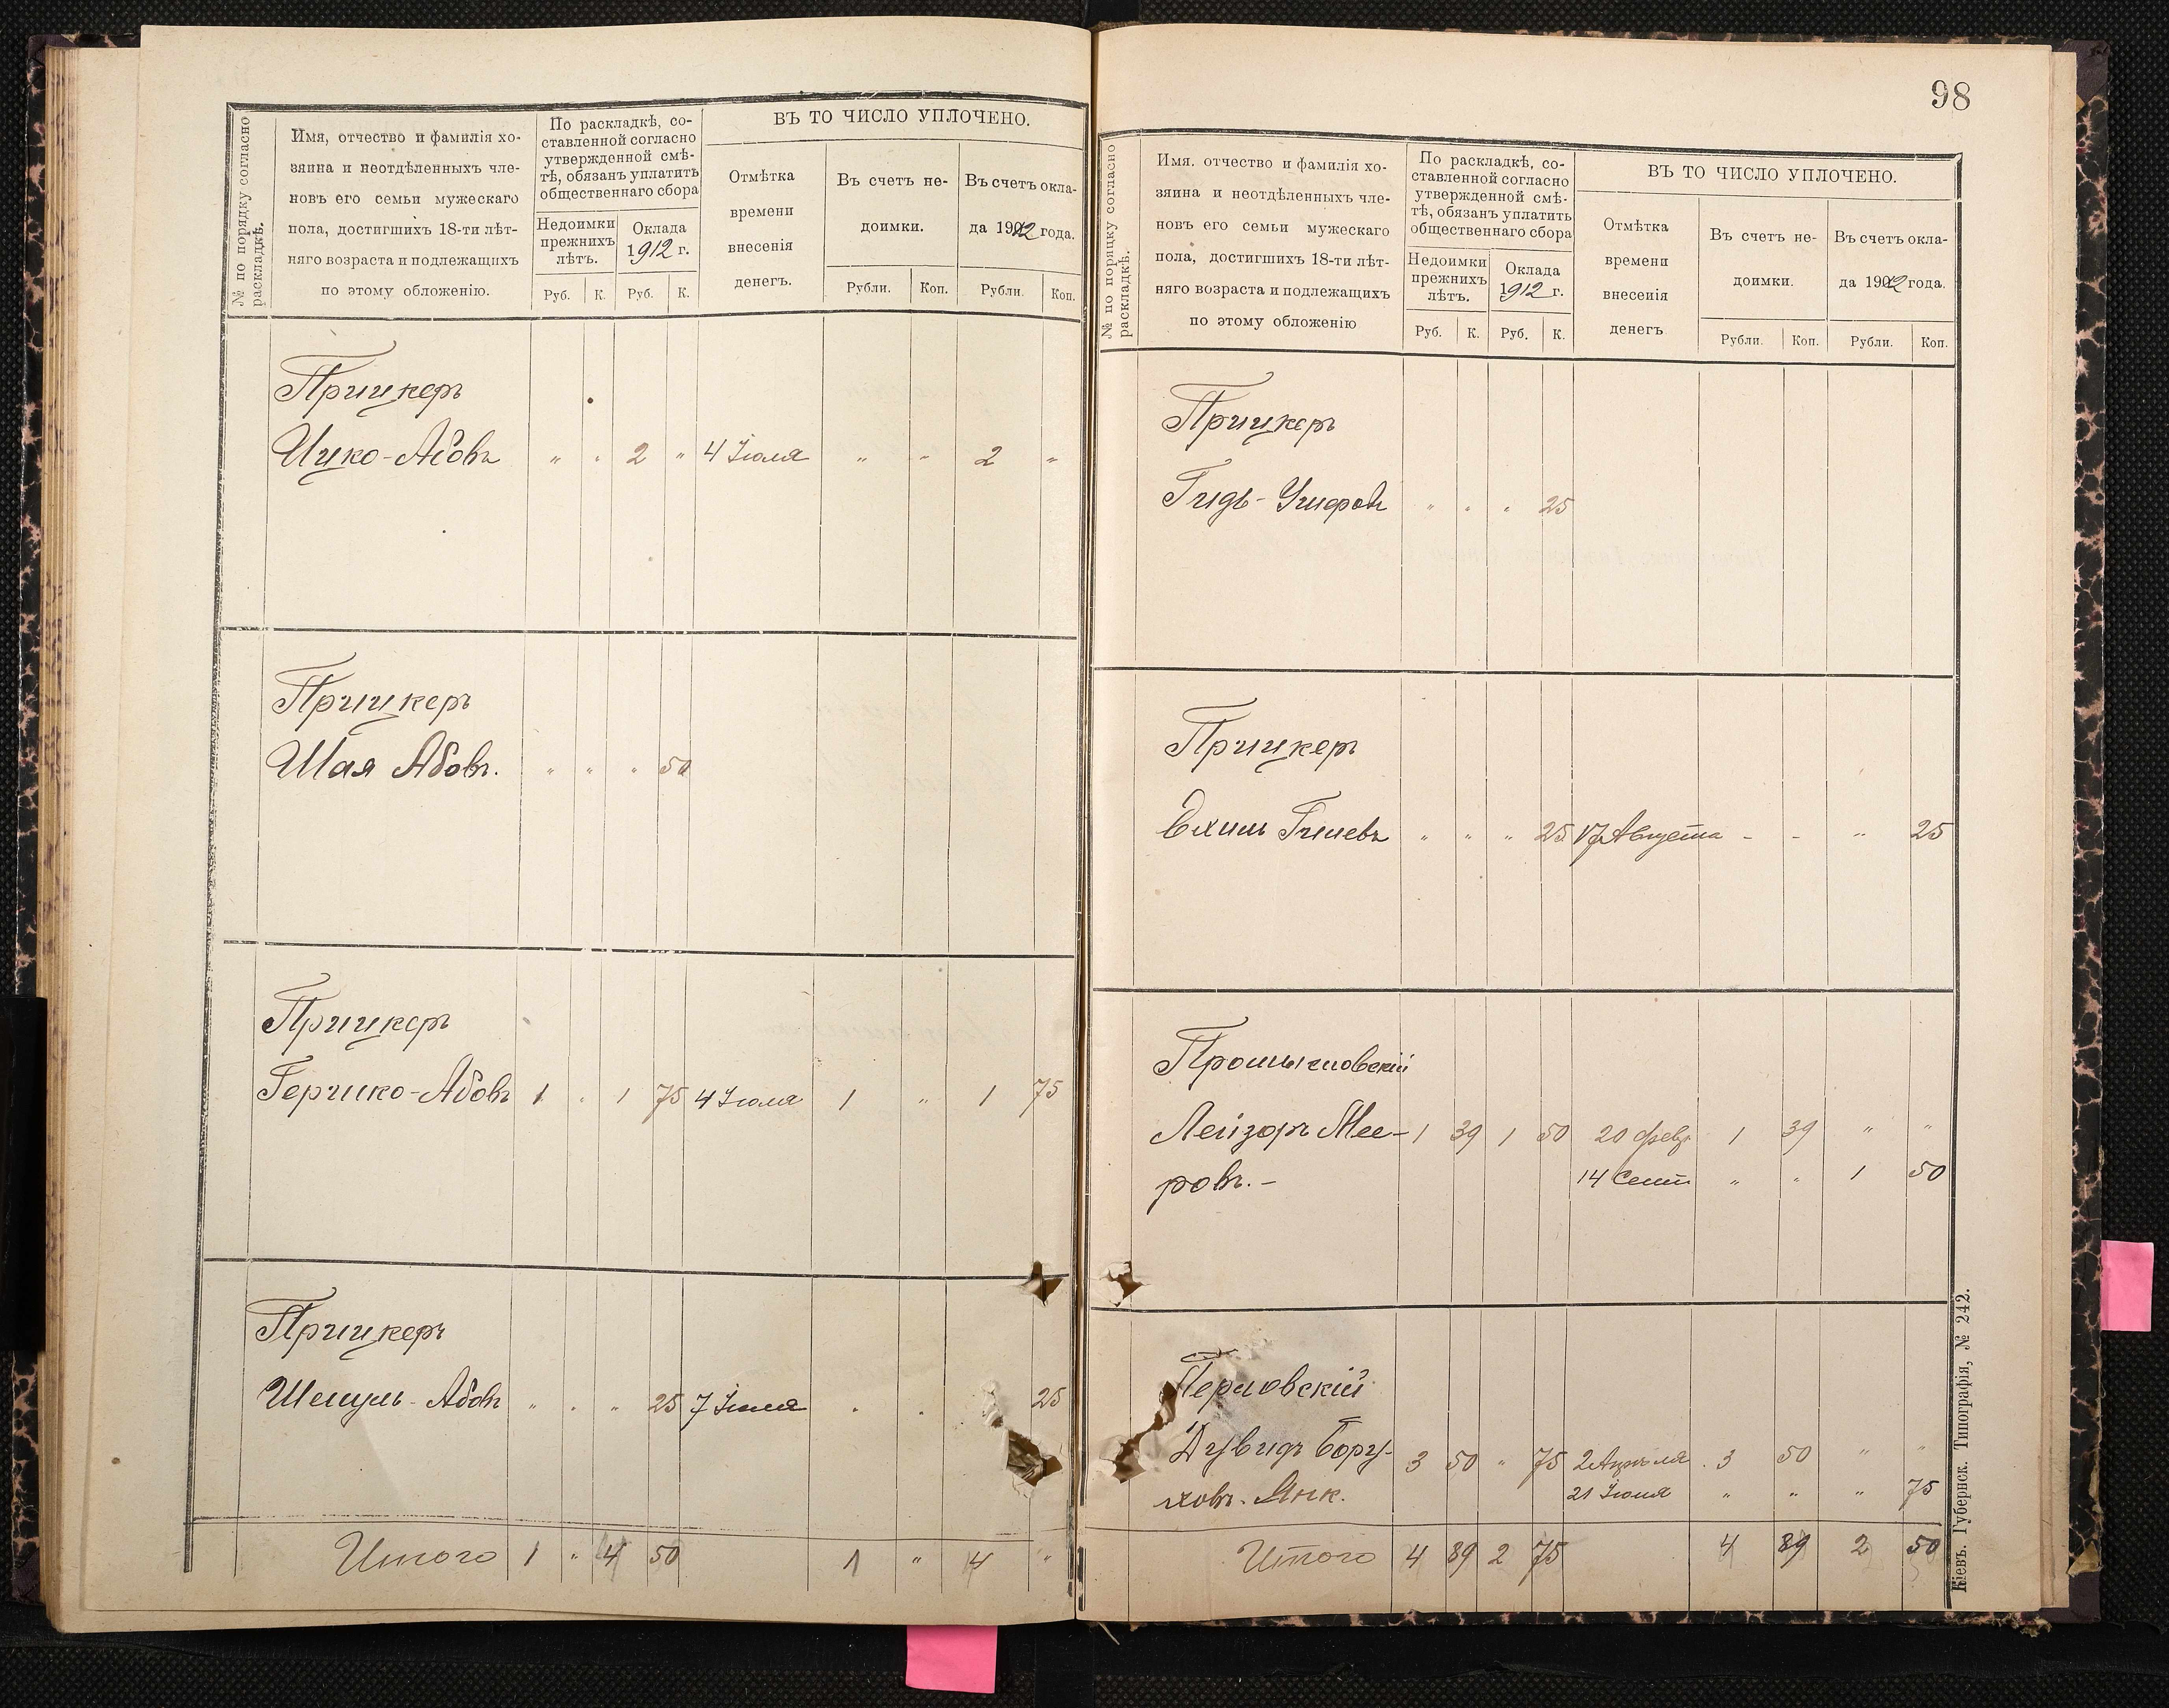 № по порядку согласно
раскладкѣ.
Имя, отчество и фамилія хо-
зяина и неотдѣленныхъ чле-
новъ его семьи мужескаго
пола, достигшихъ 18-ти лѣт-
няго возраста и подлежащихъ
по этому обложенію.
По раскладкѣ, со-
ставленной согласно
утвержденной смѣ-
тѣ, обязанъ уплатить
общественнаго сбора
Недоимки
прежнихъ
лѣтъ.
Оклада
1912 г.
Руб. К. Руб. К.
ВЪ ТО ЧИСЛО УПЛОЧЕНО.
Отмѣтка
времени
внесенія
денегъ.
Въ счетъ не-
доимки.
Въ счетъ окла-
да 1912 года.
Рубли. Коп. Рубли. Коп.
Прицкеръ
Ицко-Абовъ " " 2 " 4 Іюля " " 2 "
Прицкеръ
Шая Абовъ. " " " 50
Прицкеръ
Гершко-Абовъ 1 " 1 75 4 Іюля 1 " 1 75
Прицкеръ
Шемуль-Абовъ " " " 25 7 Іюля " " 25
Итого 1 " 4 50 1 " 4 "
98
№ по порядку согласно
раскладкѣ.
Имя. отчество и фамилія хо-
зяина и неотдѣленныхъ чле-
новъ его семьи мужескаго
пола, достигшихъ 18-ти лѣт-
няго возраста и подлежащихъ
по этому обложенію
По раскладкѣ, со-
ставленной согласно
утвержденной смѣ-
тѣ, обязанъ уплатить
общественнаго сбора
Недоимки
прежнихъ
лѣтъ.
Оклада
1912 г.
Руб. К. Руб. К.
ВЪ ТО ЧИСЛО УПЛОЧЕНО.
Отмѣтка
времени
внесенія
денегъ
Въ счетъ не-
доимки.
Въ счетъ окла-
да 1912 года.
Рубли. Коп. Рубли. Коп.
Прицкеръ
" " " 25
Прицкеръ
Ехиль " " " 25 17 Августа - - " 25
Промысловскій
Лейзоръ Мее- 1 39 1 50 20 февр 1 39 " "
ровъ.- 14 Сент " " 1 50
Перловскій
Дувидъ Бору- 3 50 " 75 2 Апрѣля 3 50 " "
ховъ. Янк. 21 Іюня " " " 75
Итого 4 89 2 75 4 89 2 50
Кіевъ. Губернск. Типографія, № 242.